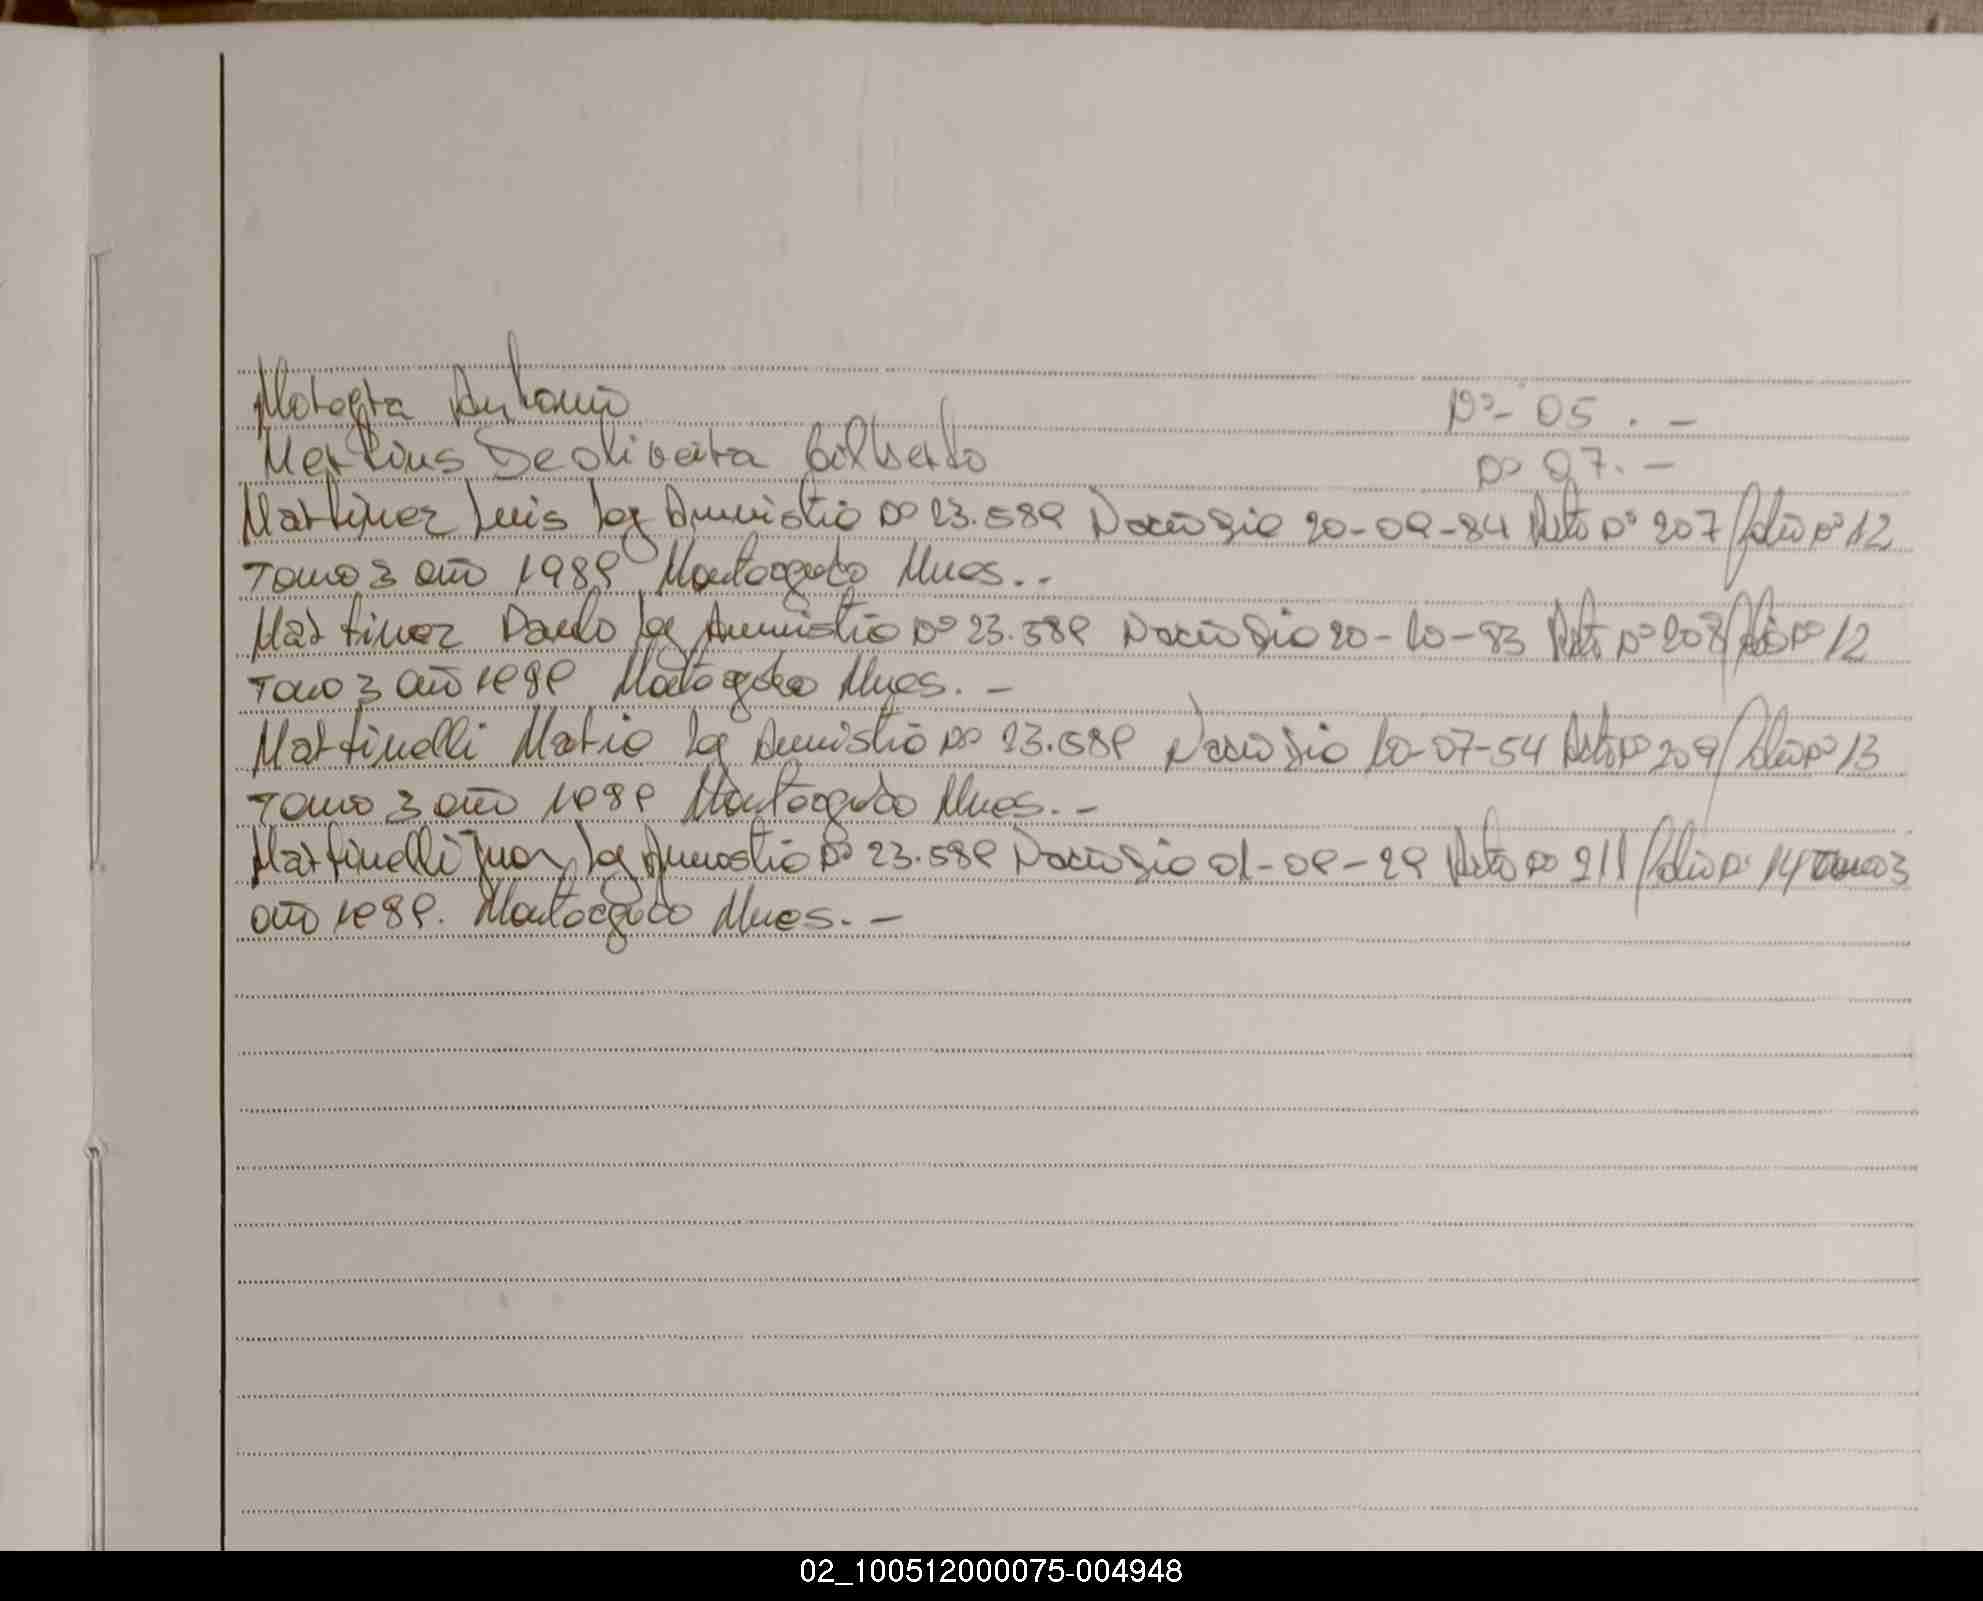 Motogra Antonio Nº- 05. -
Mertins De oliveira Gilberto Nº 07. -
Martinez Luis ley Amnistia Nº 23.589 Nacio Dia 20-09-84 Acta Nº 207 folio nº 12
Tomo 3 año 1989 Montoagudo Mnes..
Martinez Danlo ley Amnistia Nº 23.589 Nacio Dia 20-10-83 Acta Nº 208 folio nº 12
Tomo 3 año 1989 Montoagudo Mnes. -
Martinelli Mario ley Amnistia Nº 23.589 Nacio Dia 10-07-54 Acta Nº 209 folio nº 13
Tomo 3 año 1989 Montoagudo Mnes. -
Martinelli Juan ley Amnistia Nº 23.589 Nacio Dia 01-09-29 Acta Nº 211 folio nº 14 Tomo 3
año 1989. Montoagudo Mnes. -
02_100512000075-004948